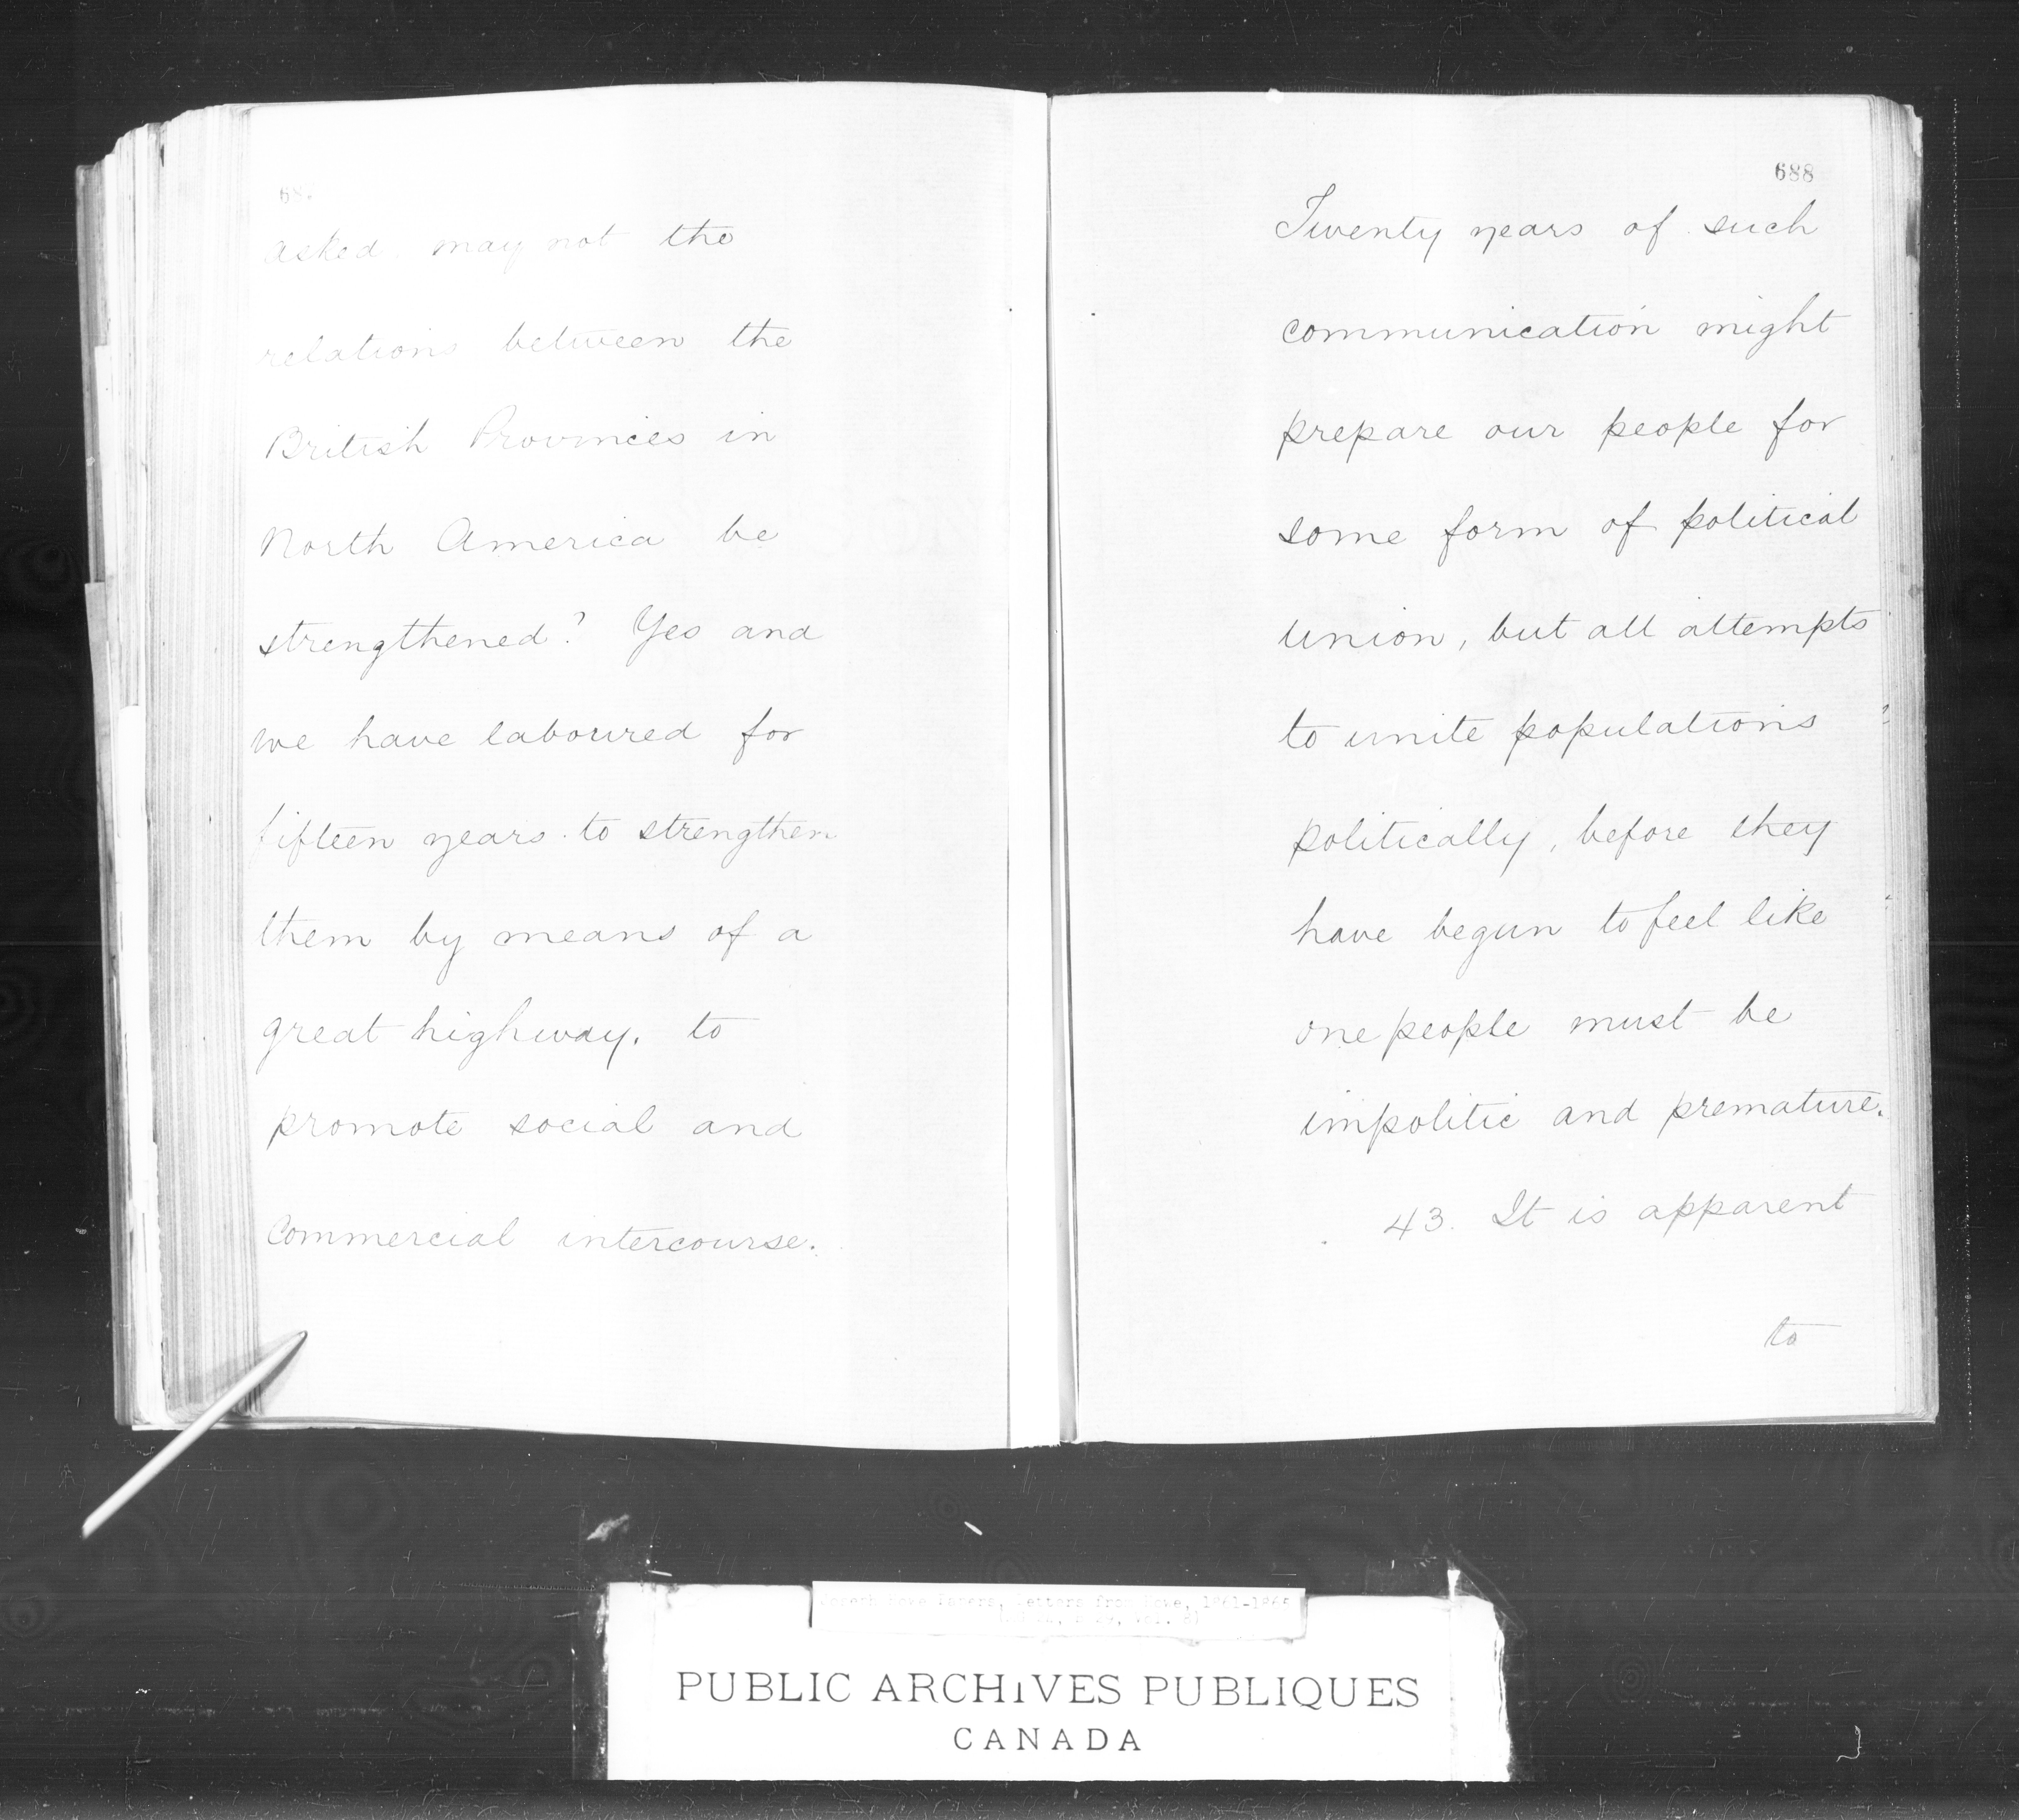 asked, may not the
relations between the
British Provinces in
North America be
strengthened? Yes and
we have laboured for
fifteen years to strengthen
them by means of a
great highway, to
promote social and
Commercial intercourse.
688
Twenty years of such
communication might
prepare our people for
some form of political
union, but all attempts
to unite populations
politically, before they
have begun to feel like
one people must be
impolitic and premature.
43. It is apparent
to
Joseph Howe Papers, Letters from Howe, 1861-1865
PUBLIC ARCHIVES PUBLIQUES
CANADA